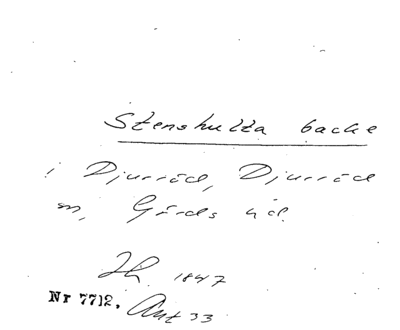 Stenshulta backe
i Djurröd, Djurröd
sn, Gärds hd.
Jh. 1847
Nr 7712. Ant 33